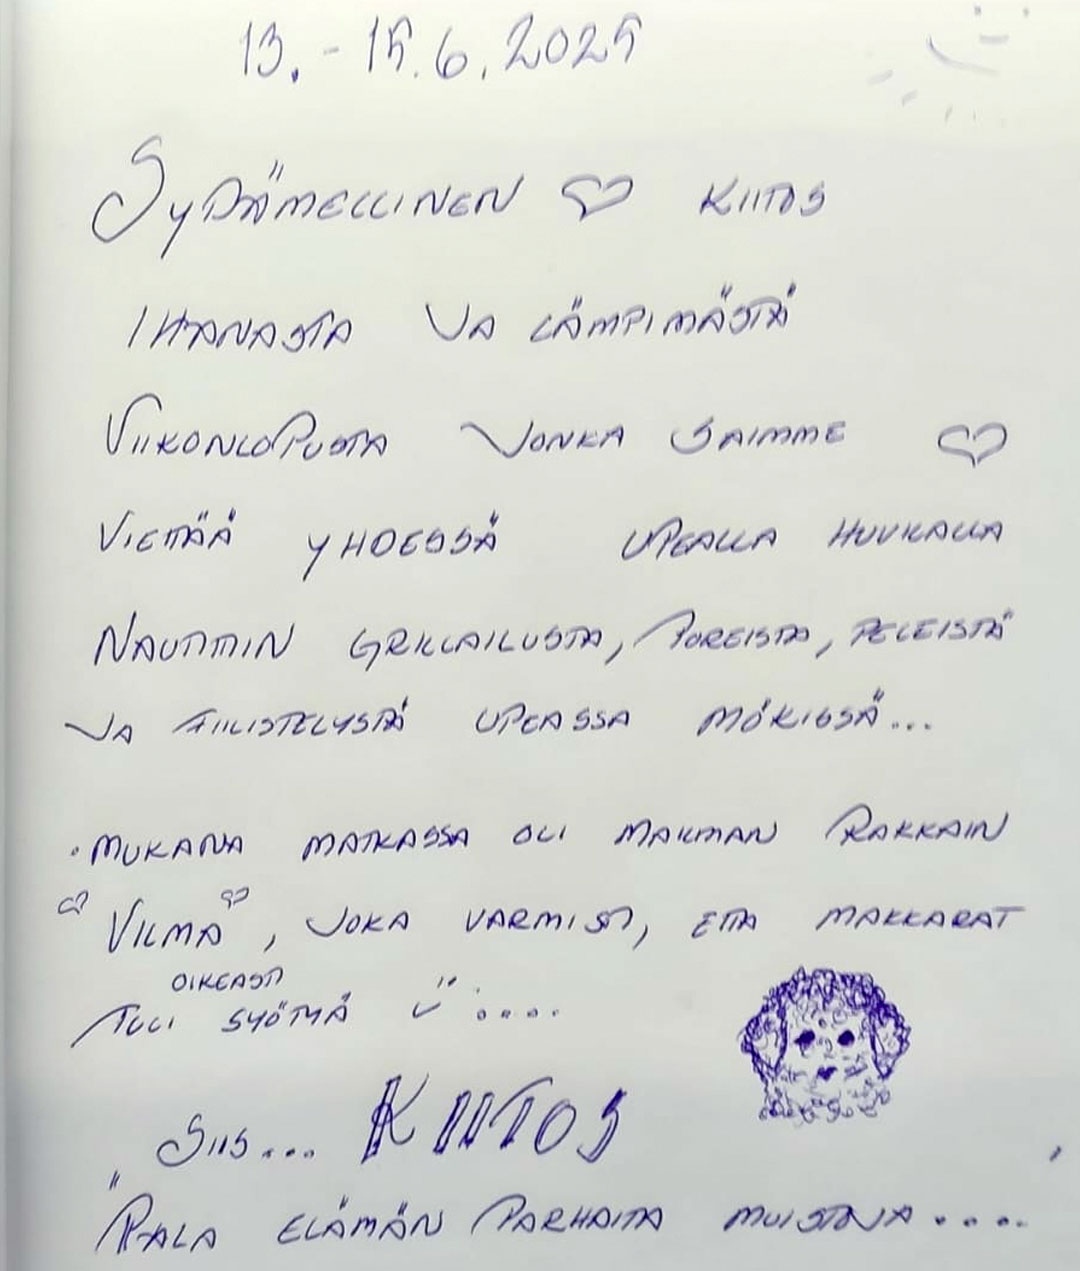 13. - 15.6.2025
SYDÄMELLINEN ♡ KIITOS
IHANASTA JA LÄMPIMÄSTÄ
VIIKONLOPUSTA JONKA SAIMME ♡
VIETTÄÄ YHDESSÄ UPEALLA HUVILALLA
NAUTTIIN GRILLAILUSTA, POREISTA, PELEISTÄ
JA FIILISTELYSTÄ UPEASSA MÖKISSÄ...
. MUKANA MATKASSA OLI MAILMAN RAKKAIN
♡ VILMA ♡, JOKA VARMISTI, ETTA MAKKARAT
OIKEASTI
TULI SYÖTYÄ Ü ....
SIIS... KIITOS
"PALA ELÄMÄN PARHAITA MUISTOJA....